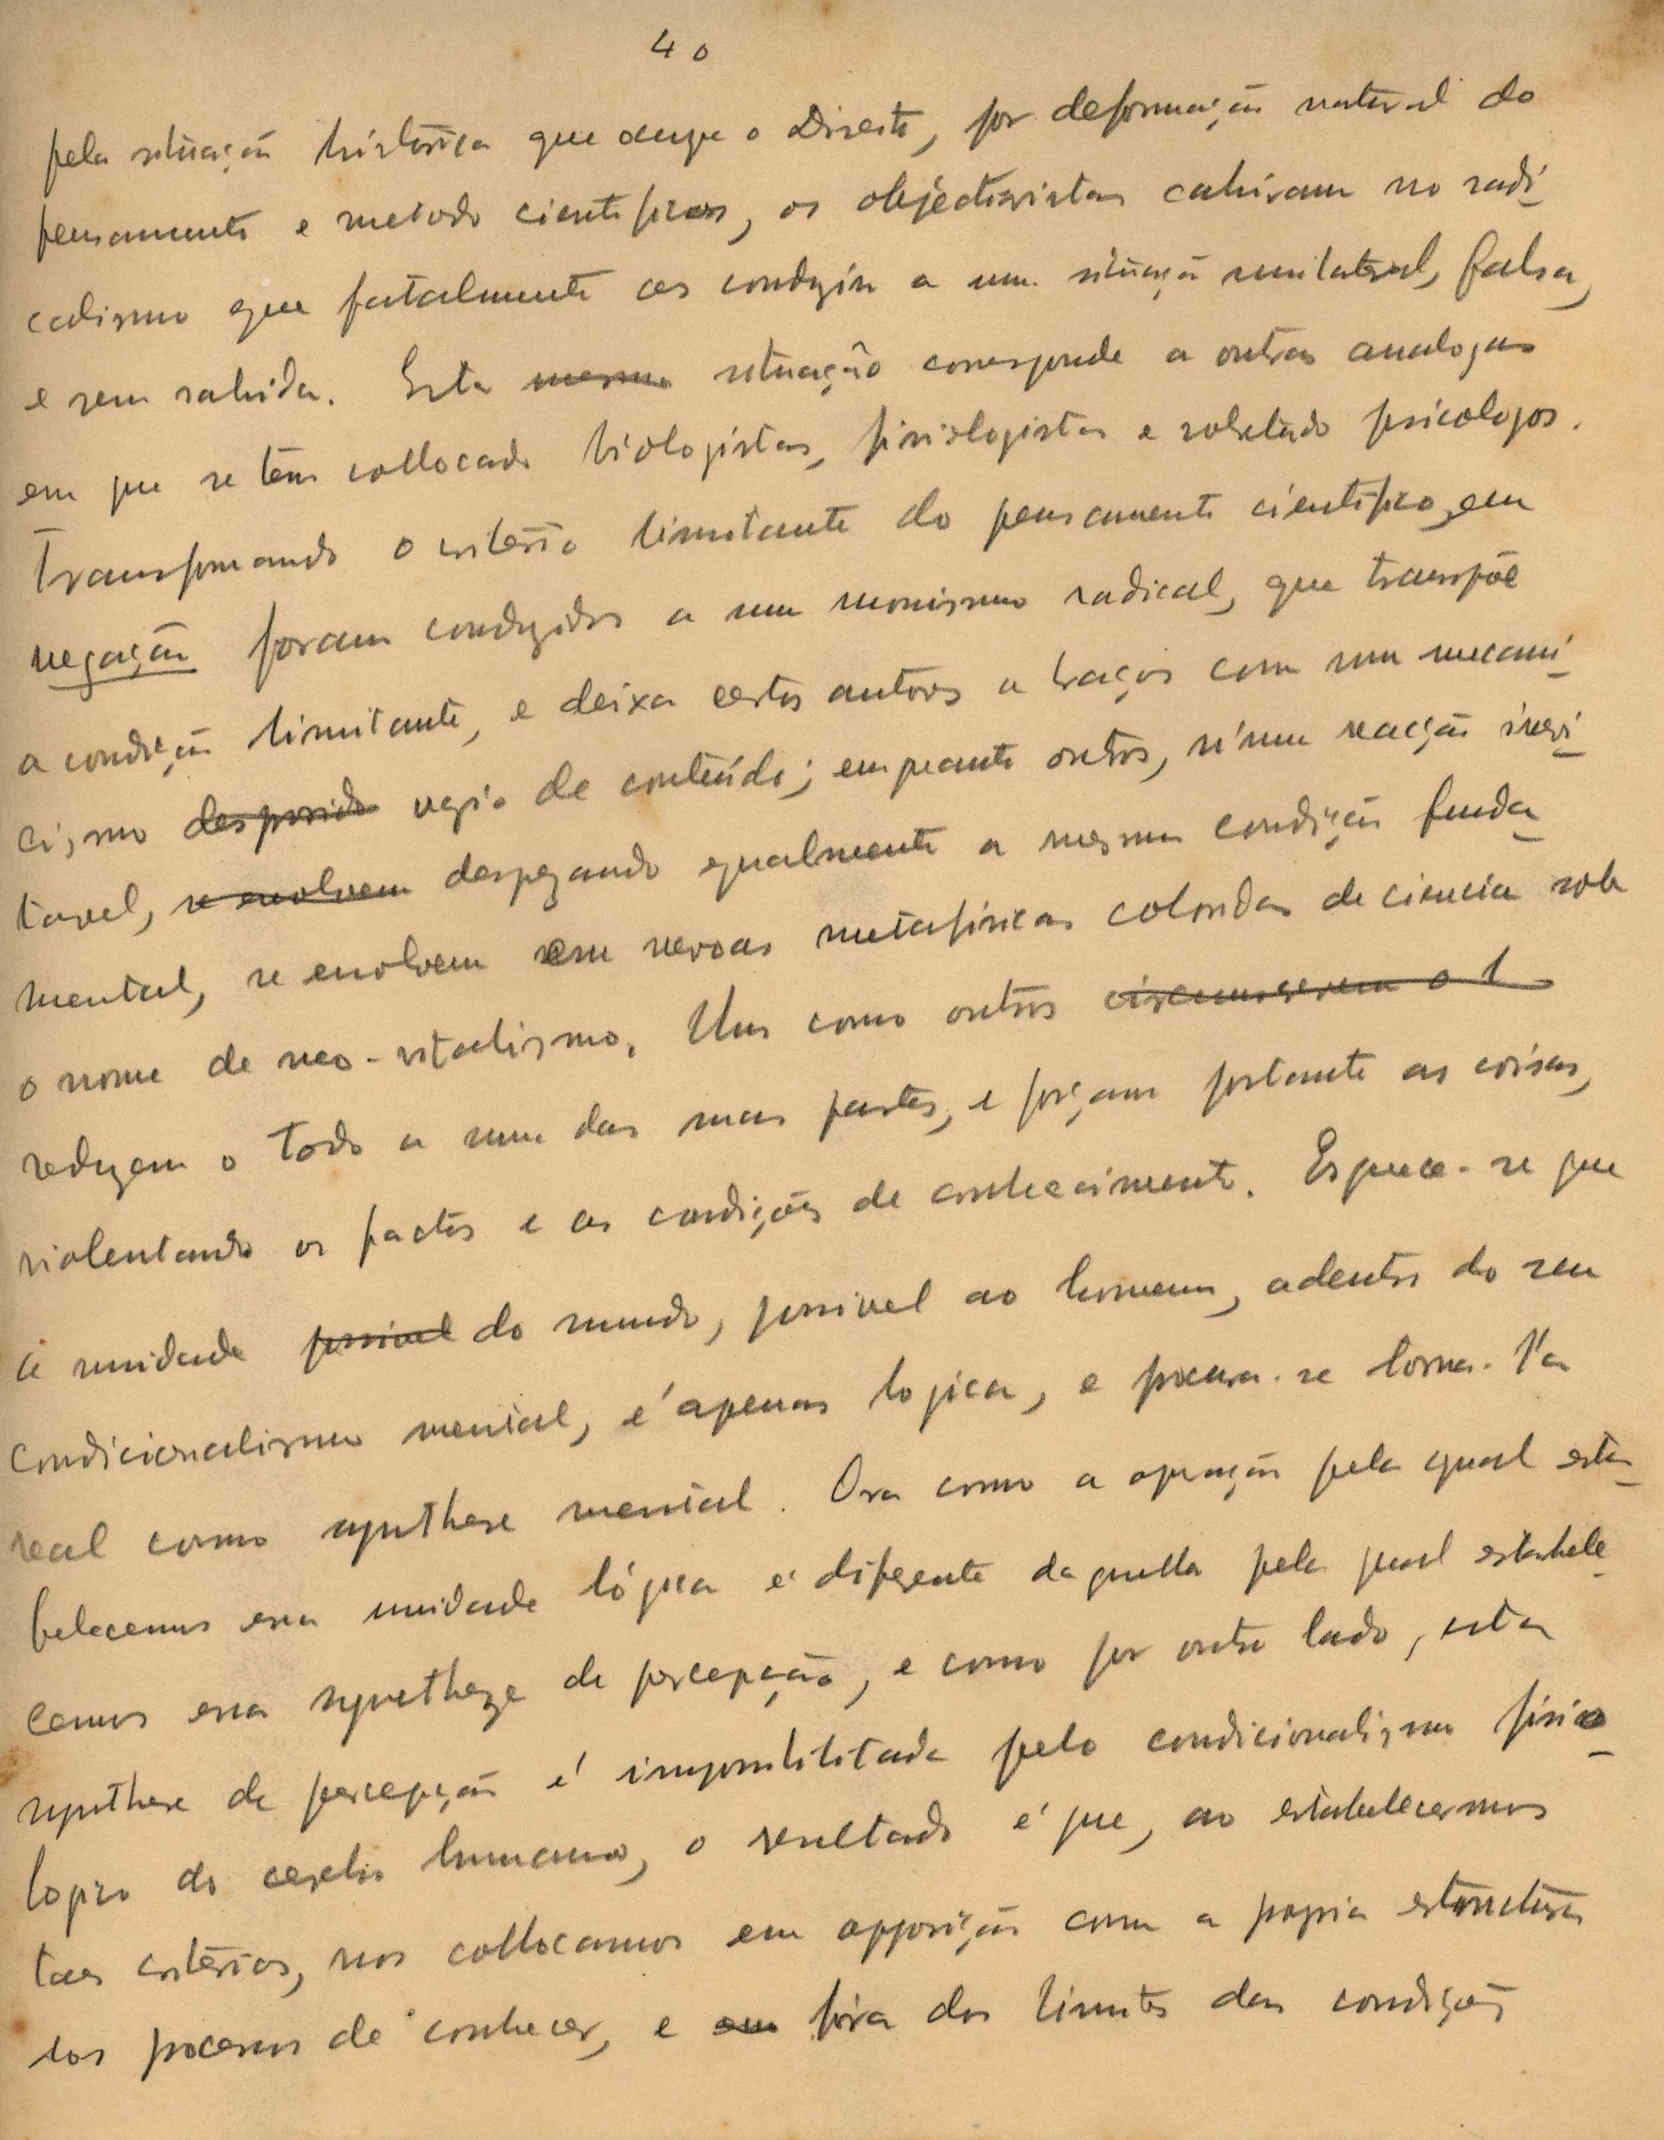 40
pela situação histórica que ocupa o Direito, por deformação natural do
pensamento e metodo cientificos, os objectivistas cahiram no radi-
calismo que fatalmente os conduziu a uma situação unilateral, falsa,
e sem sahida. Esta mesma situação corresponde a outras analogas
em que se tem collocado biologistas, fisiologistas e sobretudo psicologos.
Transformando o criterio limitante do pensamento cientifico, em
negação foram conduzidos a um monismo radical, que transpõe
a condição limitante, e deixa certos autores a braços com um mecani-
cismo desprovido vazio de conteúdo; emquanto outros, n'uma reacção inevi-
tavel, se envolvem desprezando egualmente a mesma condição funda-
mental, se envolvem em nevoas metafisicas coloridas de ciencia sob
o nome de neo-vitalismo. Uns como outros circumscrevem o t
reduzem o todo a uma das suas partes, e forçam portanto as coisas,
violentando os factos e as condições de conhecimento. Esquece-se que
a unidade possivel do mundo, possivel ao homem, adentro do seu
condicionalismo mental, é apenas logica, e procura-se torna-l'a
real como synthese mental. Ora como a operação pela qual esta-
belecemos essa unidade lógica é diferente daquella pela qual estabele-
cemos essa synthese de percepção, e como por outro lado, esta
synthese de percepção é impossibilitada pelo condicionalismo fisio-
logico do cerebro humano, o resultado é que, ao estabelecermos
taes criterios, nos collocamos em opposição com a propria estructura
dos processos de conhecer, e em fóra dos limites das condições